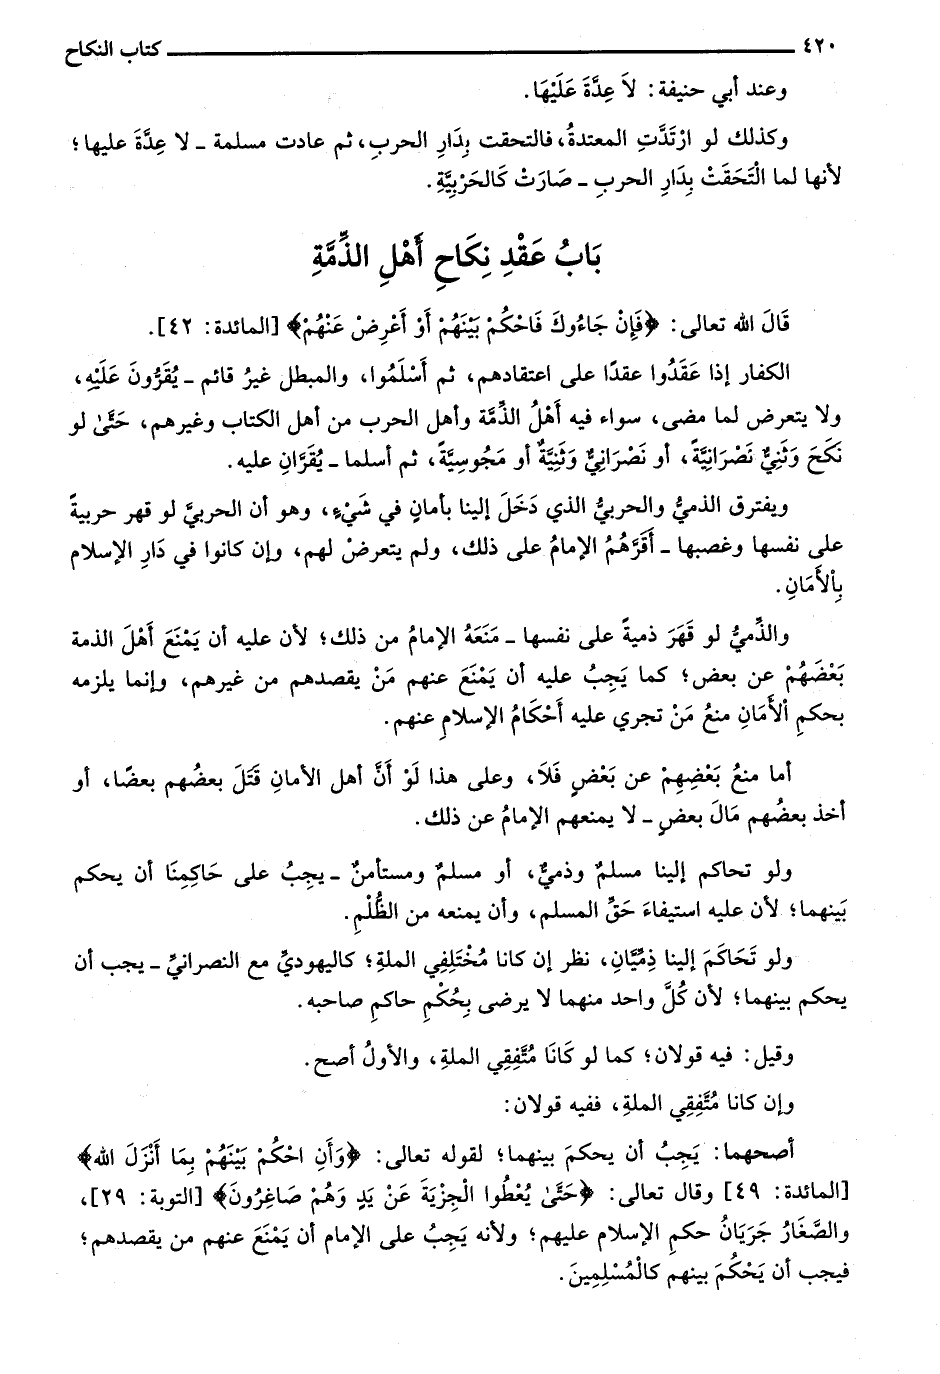 ٤٢٠ كتاب النكاح
وعند أبي حنيفة: لاَ عِدَّةَ عَلَيْهَا.
وكذلك لو ارْتَدَّتِ المعتدةُ، فالتحقت بِدَارِ الحربِ، ثم عادت مسلمة ـ لا عِدَّةَ عليها؛
لأنها لما الْتَحَقَتْ بِدَارِ الحربِ ـ صَارَتْ كَالحَرْبِيَّةِ.
بَابُ عَقْدِ نِكَاحِ أَهْلِ الذِّمَّةِ
قَالَ الله تعالى: ﴿فَإِنْ جَاءُوكَ فَاحْكُمْ بَيْنَهُمْ أَوْ أَعْرِضْ عَنْهُمْ﴾ [المائدة: ٤٢].
الكفار إذا عَقَدُوا عقدًا على اعتقادهم، ثم أَسْلَمُوا، والمبطل غيرُ قائم ـ يُقَرُّونَ عَلَيْهِ،
ولا يتعرض لما مضى، سواء فيه أَهْلُ الذِّمَّة وأهل الحرب من أهل الكتاب وغيرهم، حَتَّى لو
نَكَحَ وَثَنِيٌّ نَصْرَانِيَّةً، أو نَصْرَانِيٌّ وَثَنِيَّةً أو مَجُوسِيَّةً، ثم أسلما ـ يُقَرَّانِ عليه.
ويفترق الذميُّ والحربيُّ الذي دَخَلَ إلينا بأمانٍ في شَيْءٍ، وهو أن الحربيَّ لو قهر حربيةً
على نفسها وغصبها ـ أَقَرَّهُمُ الإمامُ على ذلك، ولم يتعرضْ لهم، وإن كانوا في دَارِ الإسلام
بِالْأَمَانِ.
والذِّميُّ لو قَهَرَ ذميةً على نفسها ـ مَنَعَهُ الإمامُ من ذلك؛ لأن عليه أن يَمْنَعَ أَهْلَ الذمة
بَعْضَهُمْ عن بعض؛ كما يَجِبُ عليه أن يَمْنَعَ عنهم مَنْ يقصدهم من غيرهم، وإنما يلزمه
بحكمِ الْأَمَانِ منعُ مَنْ تجري عليه أَحْكَامُ الإسلامِ عنهم.
أما منعُ بَعْضِهِمْ عن بَعْضٍ فَلَا، وعلى هذا لَوْ أَنَّ أهل الأمانِ قَتَلَ بعضُهم بعضًا، أو
أخذ بعضُهم مَالَ بعضٍ ـ لا يمنعهم الإمامُ عن ذلك.
ولو تحاكم إلينا مسلمٌ وذميٌّ، أو مسلمٌ ومستأمنٌ ـ يجِبُ على حَاكِمِنَا أن يحكم
بَينهما؛ لأن عليه استيفاءَ حَقِّ المسلم، وأن يمنعه من الظُّلْمِ.
ولو تَحَاكَمَ إلينا ذِمِّيَّانِ، نظر إن كانا مُخْتَلِفِي الملةِ؛ كاليهوديِّ مع النصرانيِّ ـ يجب أن
يحكم بينهما؛ لأن كُلَّ واحد منهما لا يرضى بِحُكْمِ حاكمِ صاحبه.
وقيل: فيه قولان؛ كما لو كَانَا مُتَّفِقِي الملةِ، والأولُ أصح.
وإن كانا مُتَّفِقِي الملةِ، ففيه قولان:
أصحهما: يَجِبُ أن يحكمَ بينهما؛ لقوله تعالى: ﴿وَأَنِ احْكُمْ بَيْنَهُمْ بِمَا أَنْزَلَ الله﴾
[المائدة: ٤٩] وقال تعالى: ﴿حَتَّى يُعْطُوا الْجِزْيَةَ عَنْ يَدٍ وَهُمْ صَاغِرُونَ﴾ [التوبة: ٢٩]،
والصَّغَارُ جَرَيَانُ حكمِ الإسلام عليهم؛ ولأنه يَجِبُ على الإمام أن يَمْنَعَ عنهم من يقصدهم؛
فيجب أن يَحْكُمَ بينهم كالْمُسْلِمِينَ.